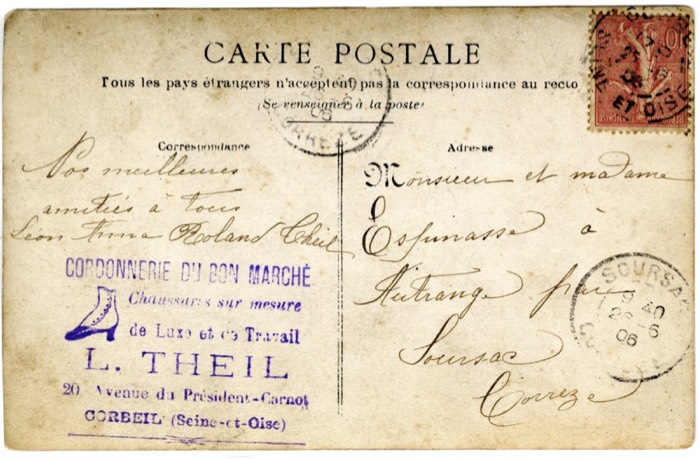 CARTE POSTALE
Tous les pays étrangers n'acceptent pas la correspondance au recto
(Se renseigner à la poste)
Correspondance
Nos meilleures
amitiés à tous
Léon Anna Roland Theil
CORDONNERIE DU BON MARCHÉ
Chaussures sur mesure
de Luxe et de Travail
L. THEIL
20 Avenue du Président-Carnot
CORBEIL (Seine-et-Oise)
Adresse
Monsieur et madame
Espinasse à
Autrange par
Soursac
Corrèze
06
CORRÈZE
10
ET OISE
SOURSAC
9 40
26 -6
06